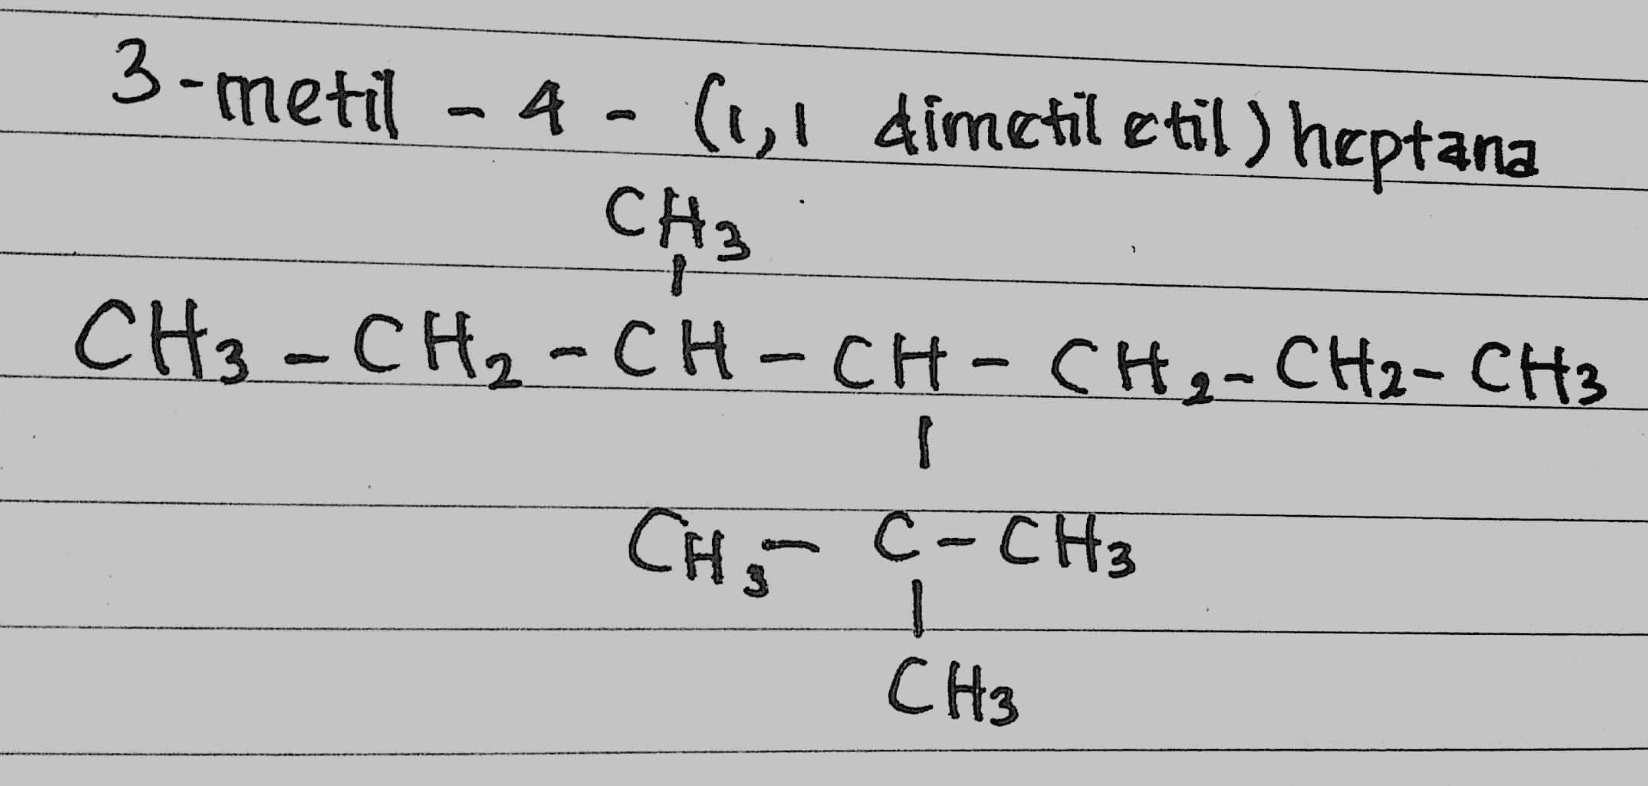 3-metil - 4 - (1,1 dimetil etil) heptana
CH3
CH3 - CH2 - CH - CH - CH2 - CH2 - CH3
CH3 - C - CH3
CH3